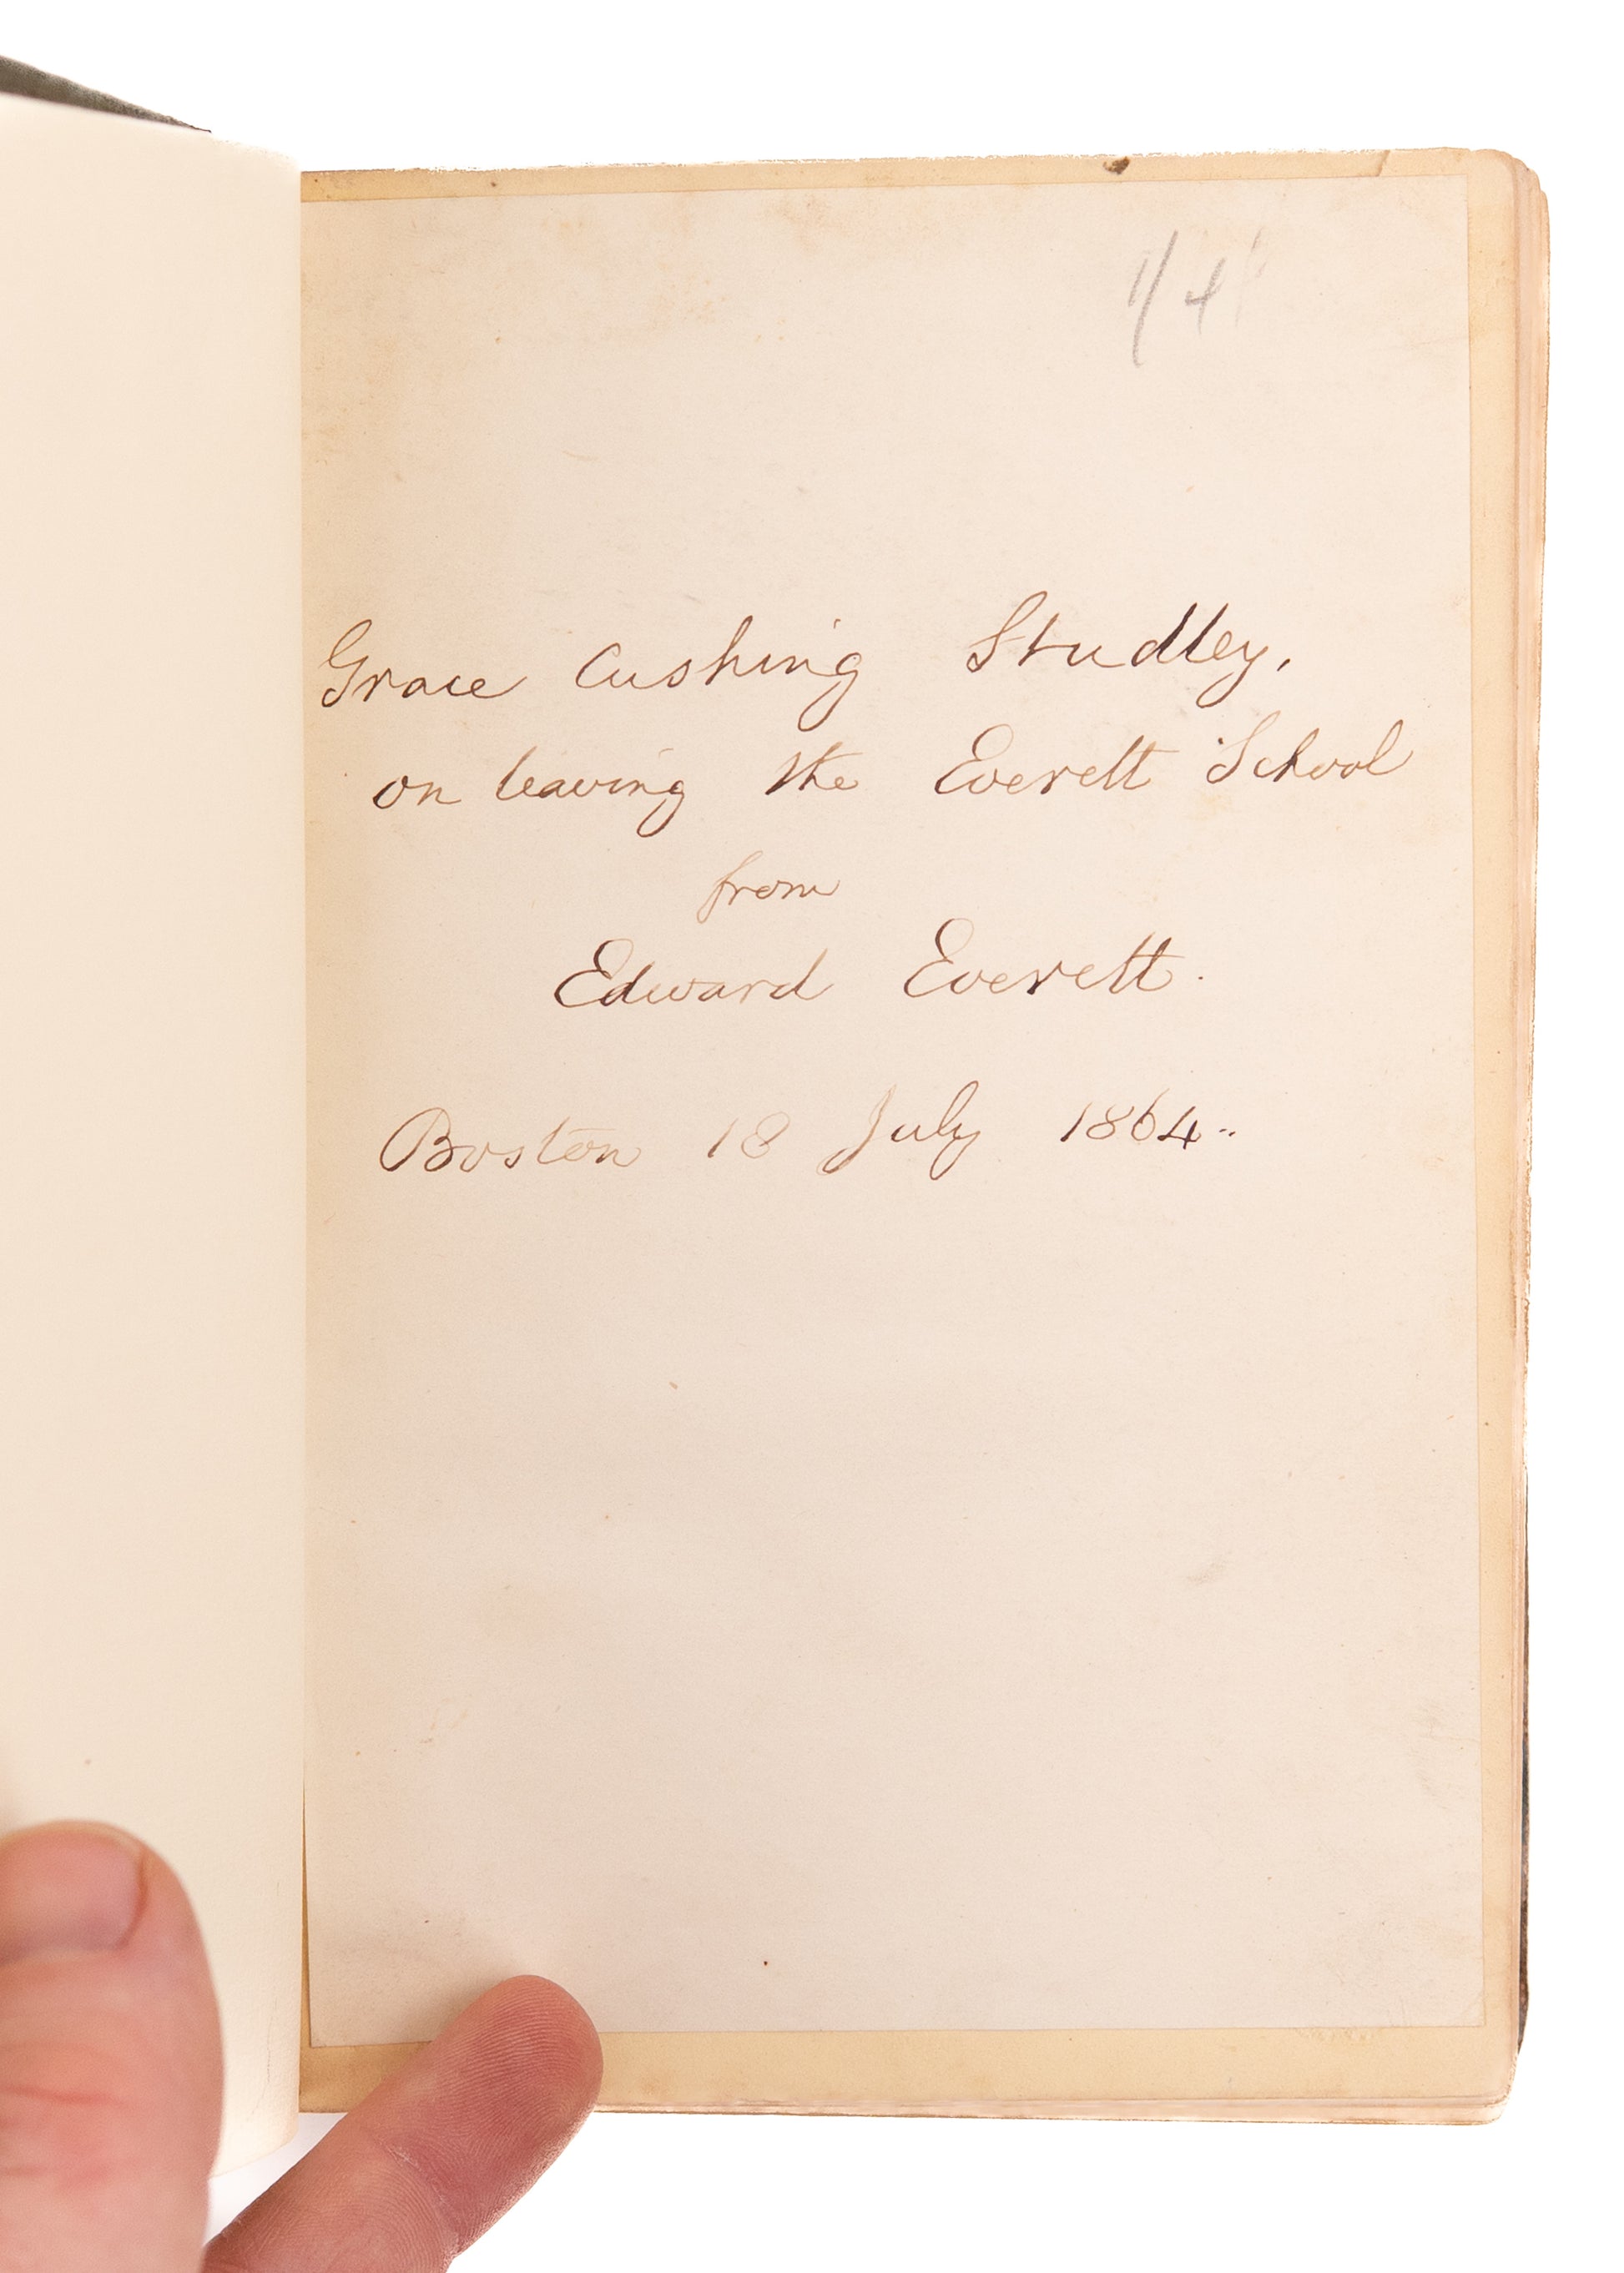 1/4
Grace Cushing Studley,
on leaving the Everett School
from
Edward Everett.
Boston 18 July 1864.